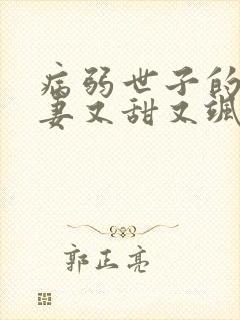 病弱世子的
妻又甜又飒
郭正亮